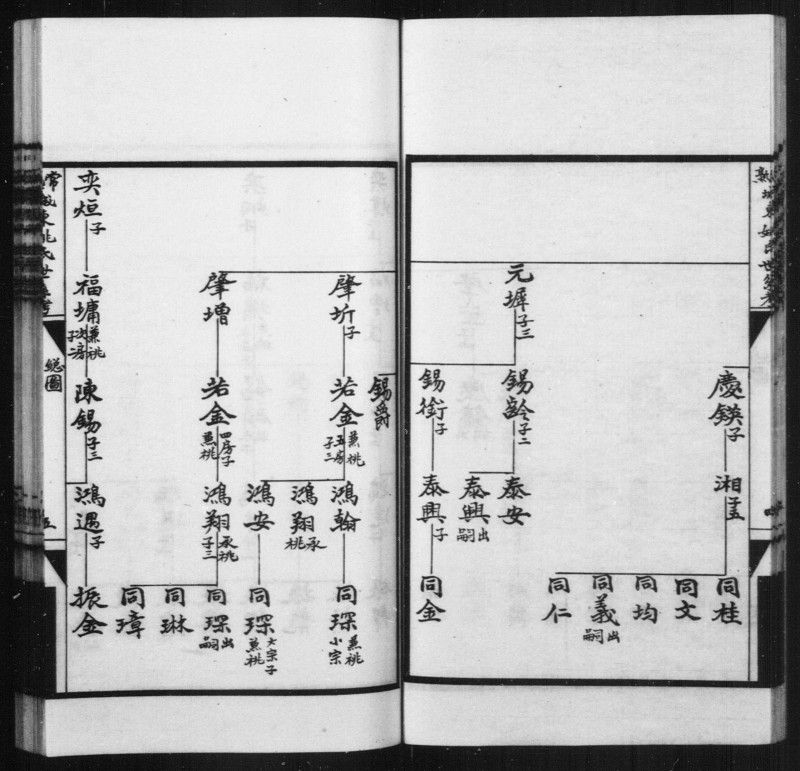 慶鍈子
湘子五
同桂
同文
同均
同義出嗣
同仁
元墀子三
錫齡子二
泰安
泰興出嗣
錫銜子
泰興子
同金
四
錫爵
肇圻子
若金兼祧五房子三
鴻翰
同琛兼祧小宗
鴻翔承祧
鴻安
同琛大宗子兼祧
肇增
若金四房子兼祧
鴻翔承祧子三
同琛出嗣
同琳
同璋
奕烜子
福墉兼祧次房子
陳錫子三
鴻遇子
振金
總圖
五